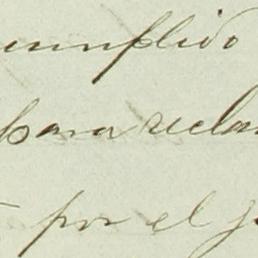 cumplido
para reclam
por el j